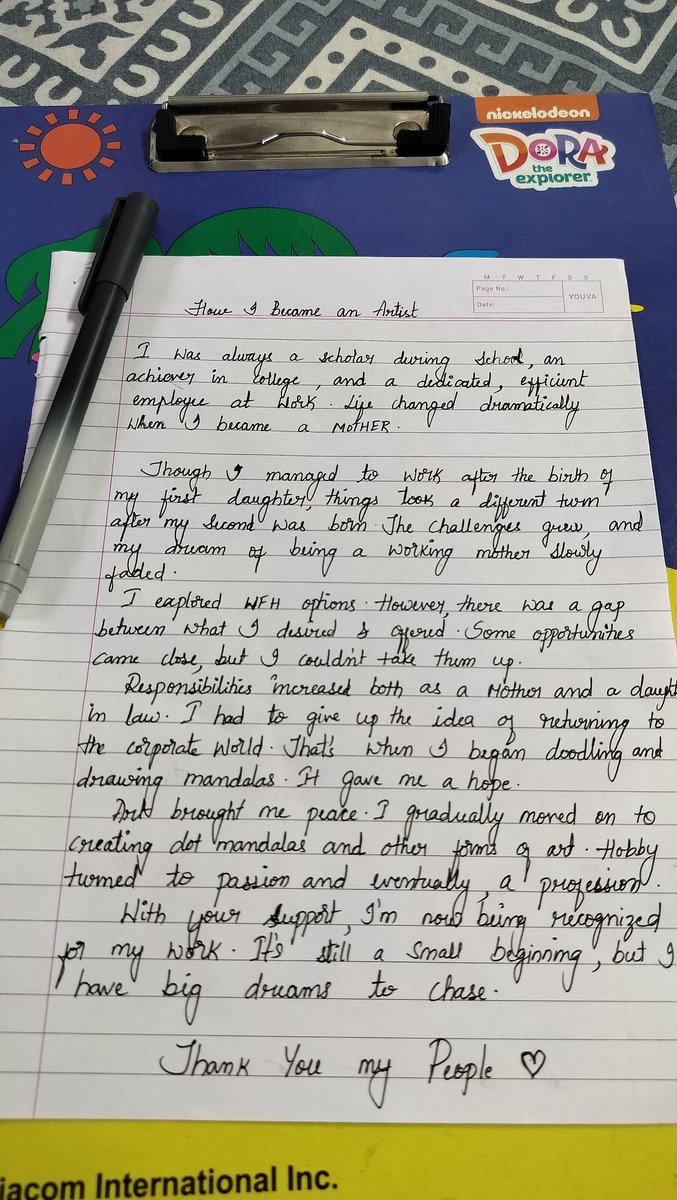 nickelodeon
DORA
the
explorer
M T W T F S S
Page No.:
Date:
YOUVA
How I Became an Artist
I was always a scholar during school, an
achiever in college, and a dedicated, efficient
employee at work. Life changed dramatically
when I became a MOTHER.
Though I managed to work after the birth of
my first daughter, things took a different turn
after my second was born. The challenges grew, and
my dream of being a working mother slowly
faded.
I explored WFH options. However, there was a gap
between what I desired & offered. Some opportunities
came close, but I couldn't take them up.
Responsibilities increased both as a Mother and a daught
in law. I had to give up the idea of returning to
the corporate world. That's when I began doodling and
drawing mandalas. It gave me a hope.
Art brought me peace. I gradually moved on to
creating dot mandalas and other forms of art. Hobby
turned to passion and eventually, a profession.
With your support, I'm now being recognized
for my work. It's still a small beginning, but I
have big dreams to chase.
Thank You my People ♡
iacom International Inc.